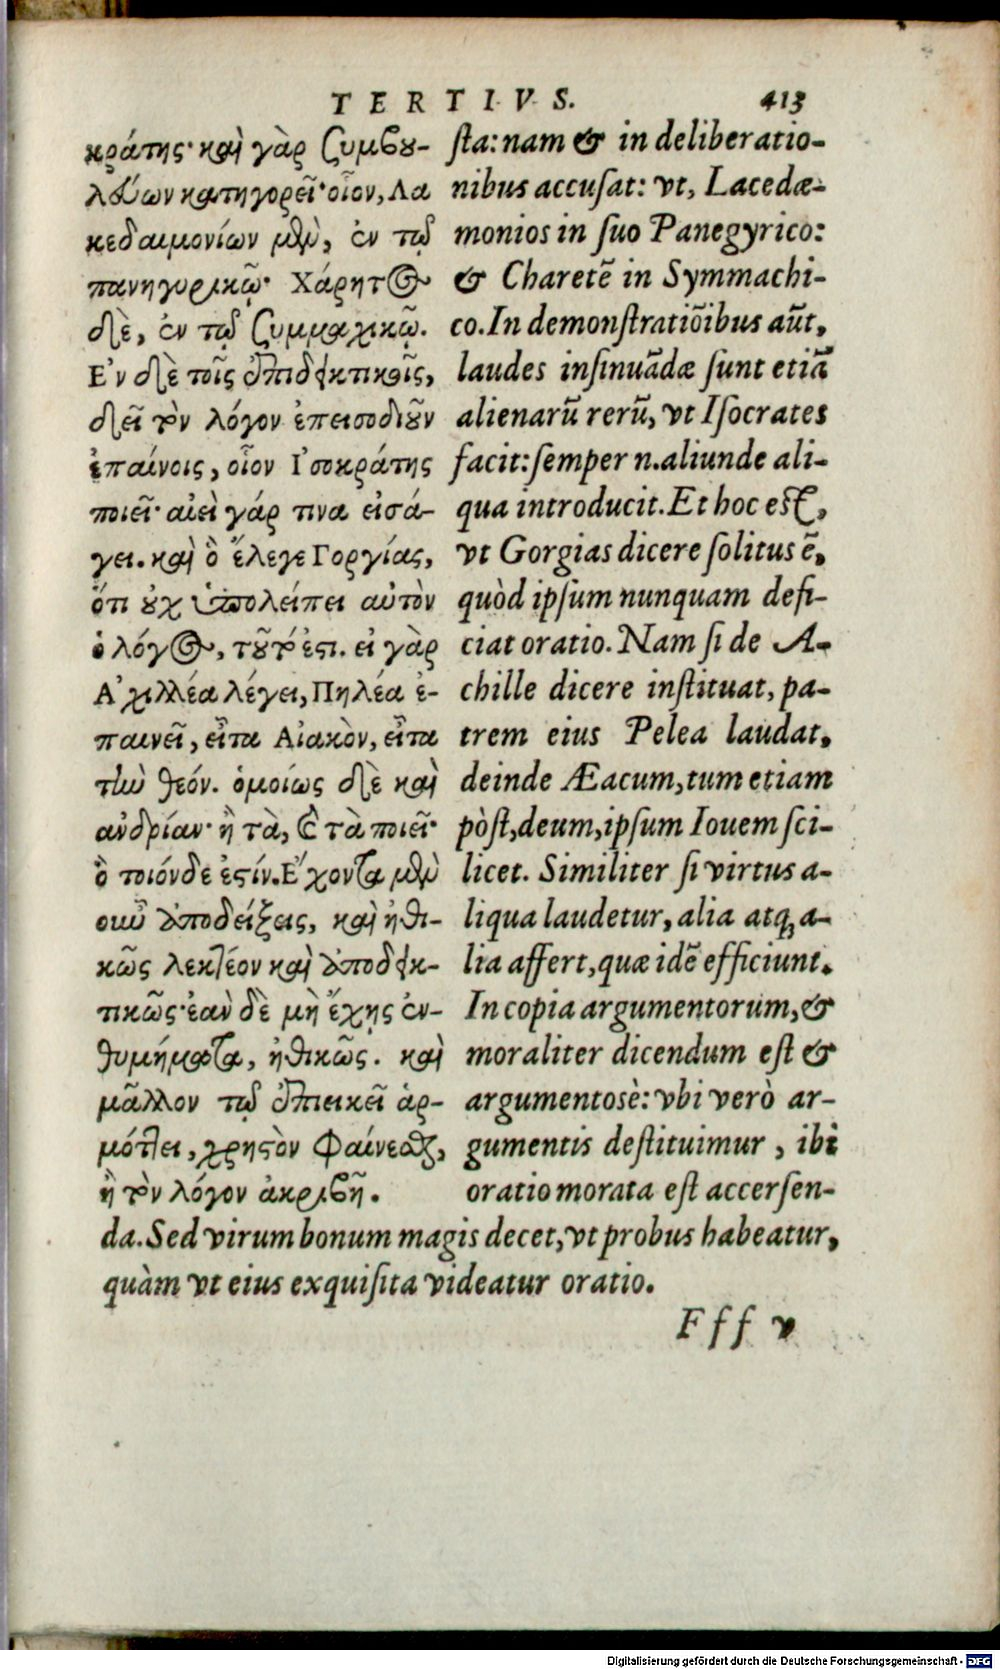 TERTIVS. 413
κράτης· καὶ γὰρ ξυμβου-
λεύων κατηγορεῖ· οἷον, Λα
κεδαιμονίων μὲν, ἐν τῷ
πανηγυρικῷ· Χάρητος
δὲ, ἐν τῷ ξυμμαχικῷ.
Ἐν δὲ τοῖς ἐπιδεικτικοῖς,
δεῖ τὸν λόγον ἐπεισοδιοῦν
ἐπαίνοις, οἷον Ἰσοκράτης
ποιεῖ· αἰεὶ γάρ τινα εἰσά-
γει. καὶ ὃ ἔλεγε Γοργίας,
ὅτι οὐχ ὑπολείπει αὐτὸν
ὁ λόγος, τοῦτ' ἔστι. εἰ γὰρ
Ἀχιλλέα λέγει, Πηλέα ἐ-
παινεῖ, εἶτα Αἰακὸν, εἶτα
τὸν θεόν. ὁμοίως δὲ καὶ
ἀνδρίαν· ἢ τὰ, καὶ τὰ ποιεῖ·
ὃ τοιόνδε ἐστίν. Ἔχοντα μὲν
οὖν ἀποδείξεις, καὶ ἠθι-
κῶς λεκτέον καὶ ἀποδεικ-
τικῶς· ἐὰν δὲ μὴ ἔχῃς ἐν-
θυμήματα, ἠθικῶς. καὶ
μᾶλλον τῷ ἐπιεικεῖ ἁρ-
μόττει, χρηστὸν φαίνεσθαι,
ἢ τὸν λόγον ἀκριβῆ.
sta: nam & in deliberatio-
nibus accusat: vt, Lacedæ-
monios in suo Panegyrico:
& Charetē in Symmachi-
co. In demonstratiōibus aūt,
laudes insinuādæ sunt etiā
alienarū rerū, vt Isocrates
facit: semper n. aliunde ali-
qua introducit. Et hoc est,
vt Gorgias dicere solitus ē,
quòd ipsum nunquam defi-
ciat oratio. Nam si de A-
chille dicere instituat, pa-
trem eius Pelea laudat,
deinde Æacum, tum etiam
pòst, deum, ipsum Iouem sci-
licet. Similiter si virtus a-
liqua laudetur, alia atq; a-
lia affert, quæ idē efficiunt.
In copia argumentorum, &
moraliter dicendum est &
argumentosè: vbi verò ar-
gumentis destituimur, ibi
oratio morata est accersen-
da. Sed virum bonum magis decet, vt probus habeatur,
quàm vt eius exquisita videatur oratio.
Fff v
Digitalisierung gefördert durch die Deutsche Forschungsgemeinschaft - DFG